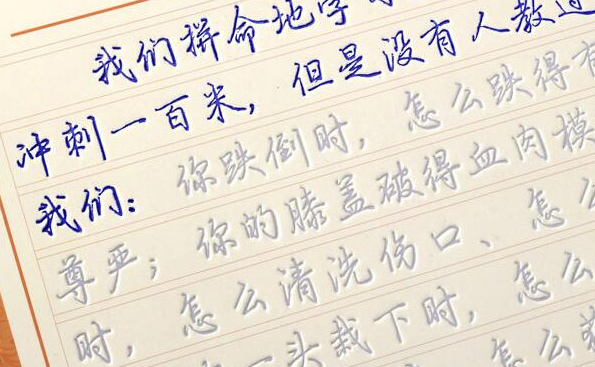 我们拼命地学
冲刺一百米，但是没有人教过
我们：你跌倒时，怎么跌得有
尊严；你的膝盖破得血肉模
时，怎么清洗伤口、怎么
一头栽下时，怎么